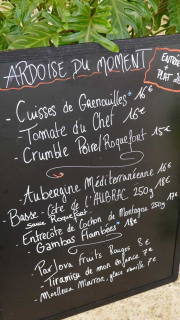 ARDOISE DU MOMENT
ENTRÉE
PLAT
- Cuisses de Grenouilles* 16€
- Tomate du Chef 16€
- Crumble Poire/Roquefort 15€
- Aubergine Méditerranéenne 16€
Basse-Côte de L'AUBRAC 250g 18€
sauce Roquefort
- Entrecôte de Cochon de Montagne 250g 17€
- Gambas Flambées* 18€
- Pavlova Fruits Rouges 8€
- Tiramisu de mon enfance 7€
- Moelleux Marron, glace vanille 7€